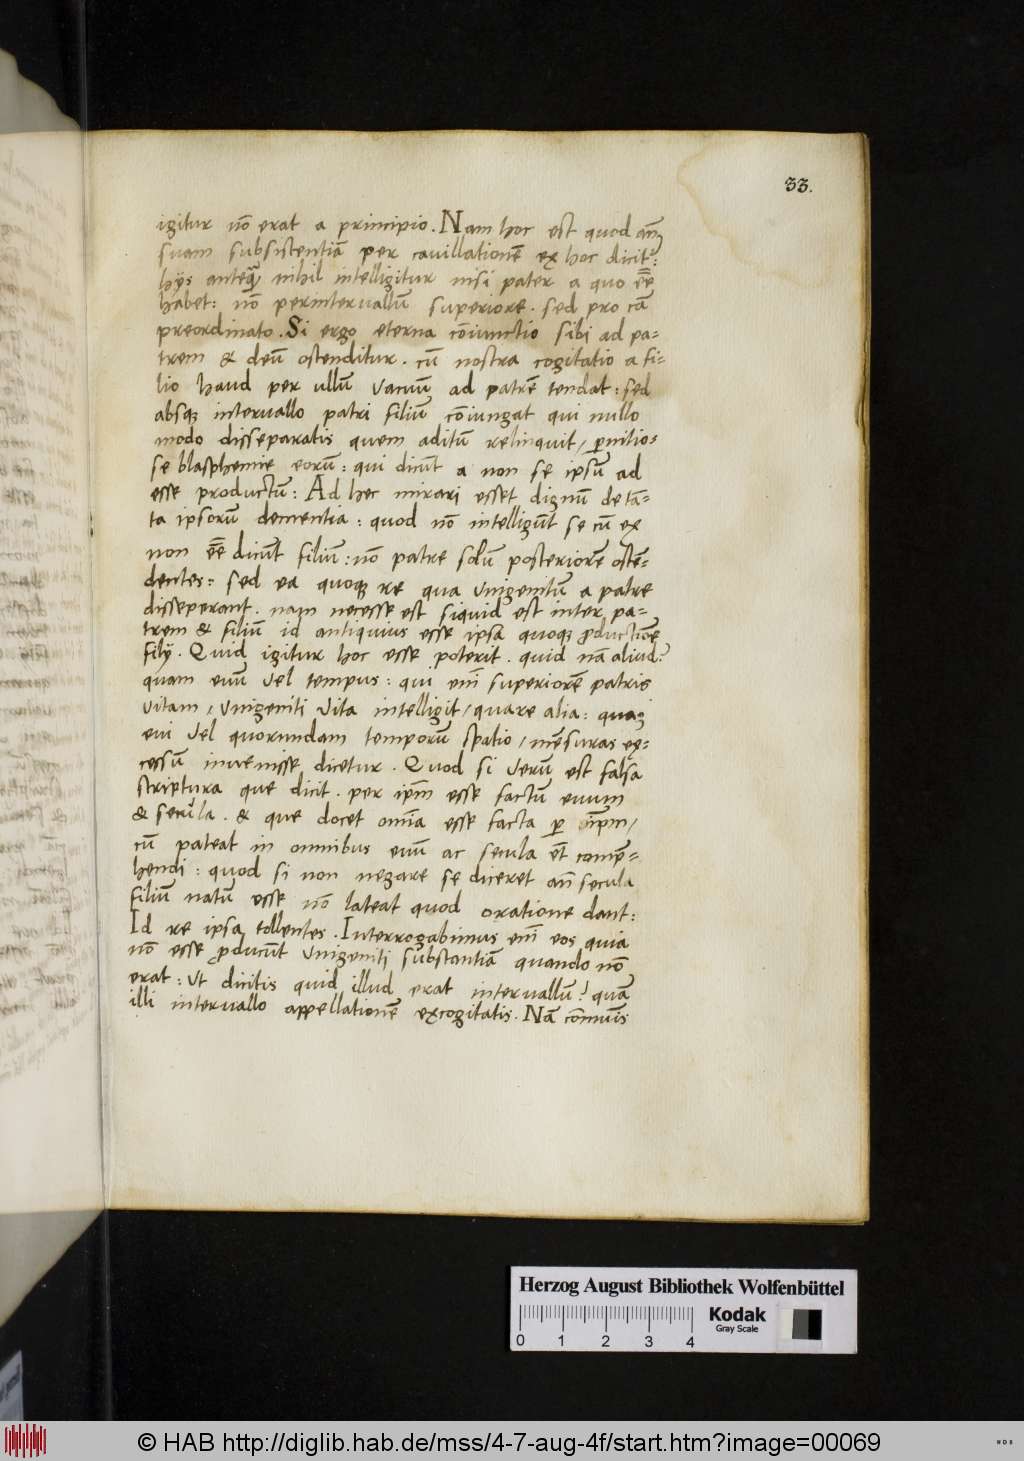 33.
igitur nō erat a principio. Nam hoc est quod añ
suam subsistentiā per cauillationē ex hoc dicit̉:
hijs anteq̃ nihil intelligitur nisi pater a quo ēē
habet: nō perinteruallū superiore. sed pro cā
preordinato. Si ergo eterna cōiunctio sibi ad pa-
trem & deū ostenditur. cū nostra cogitatio a fi-
lio haud per ullū vacuū ad patrē tendat: sed
absqꝫ interuallo patri filiū cōiungat qui nullo
modo disseparatis quem aditū relinquit, ꝑnitio-
se blasphemie eorū: qui dicūt a non se ipsū ad
esse productū: Ad hec mirari esset dignū de tā-
ta ipsorū dementia: quod nō intelligūt se cū ex
non ēē dicūt filiū: nō patre solū posteriorē ostē-
dentes: sed ea quoqꝫ re qua vnigenitū a patre
disseperant. nam necesse est siquid est inter pa-
trem & filiū id antiquius esse ipsa quoqꝫ ꝓductiōe
filij. Quid igitur hoc esse poterit. quid nā aliud?
quam euū vel tempus: qui em̄ superiorē patris
vitam, vnigeniti vita intelligit, quare alia: quaꝫ
eui vel quorundam temporū spatio, mēsuras ex-
cessū inuenisse dicetur. Quod si verū est falsa
scriptura que dicit. per ip̄m esse factū euum
& secula. & que docet om̄ia esse facta ꝑ ip̄m,
cū pateat in omnibus euū ac secula ēt comp̄-
hendi: quod si non negare se diceret añ secula
filiū natū esse nō lateat quod oratione dant:
Id re ipsa tollentes. Interrogabimus em̄ eos quia
nō esse ꝓducūt vnigeniti substantiā quando nō
erat: vt dicitis quid illud erat interuallū? quā
illi interuallo appellationē excogitatis. Nā cōmunis
Herzog August Bibliothek Wolfenbüttel
0 1 2 3 4
Kodak
Gray Scale
© HAB http://diglib.hab.de/mss/4-7-aug-4f/start.htm?image=00069